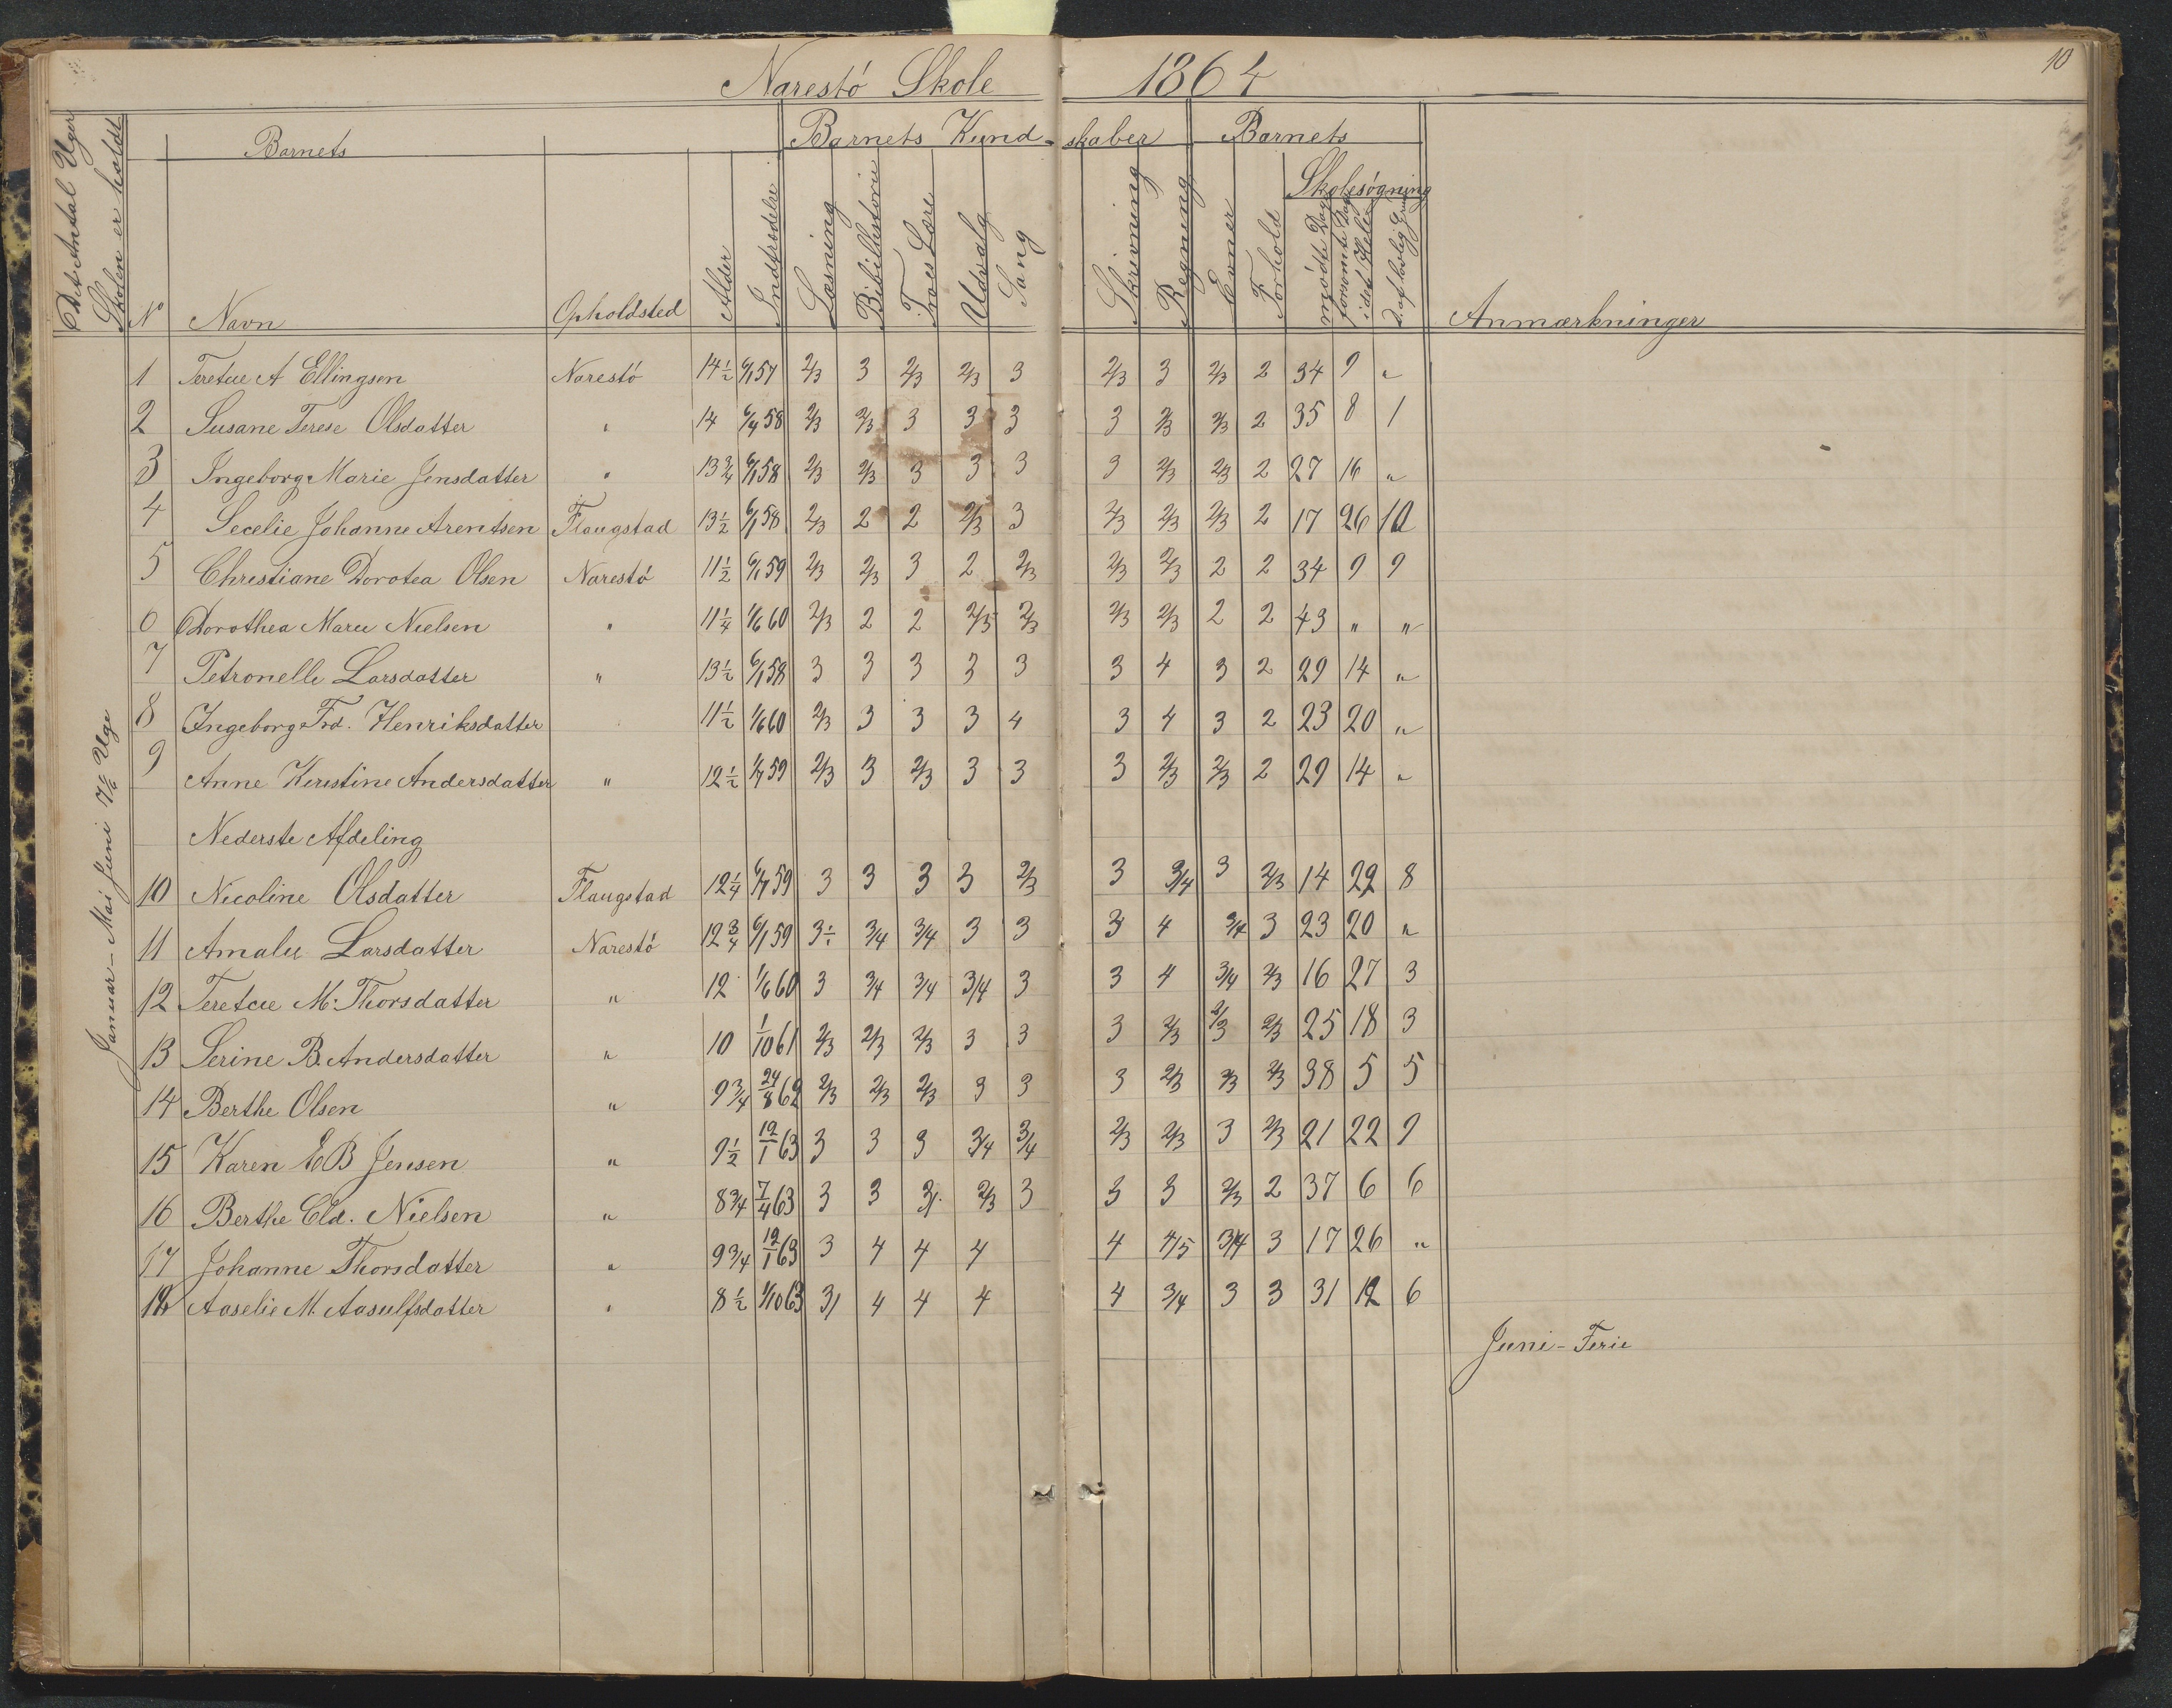 10
Narestö Skole 1864
Det Antal Uger Skolen er holdt
Barnets
Barnets Kund-skaber
Barnets
Skolesøgning
No Navn Opholdsted Alder Indtrædelse Læsning Bibelhistorie Troes Lære Udvalg Sang Skrivning Regning Evner Forhold mødte Dage forsømte Dage i det Hele Anmærkninger
Januar - Mai Juni
1 Teretue A Ellingsen Narestö 14½ 6/1 57 2/3 3 2/3 2/3 3 2/3 3 2/3 2 34 9 "
2 Susane Terese Olsdatter " 14 58 2/3 2/3 3 3 3 3 2/3 2/3 2 35 8 1
3 Ingeborg Marie Jensdatter " 13¾ 6/1 58 2/3 2/3 3 3 3 3 2/3 2/3 2 27 16 "
4 Secelie Johanne Arentsen Flaugstad 13½ 6/1 58 2/3 2 2 2/3 3 2/3 2/3 2/3 2 17 26 10
5 Christiane Dorotea Olsen Narestö 11½ 6/1 59 2/3 2/3 3 2 2/3 2/3 2/3 2 2 34 9 9
6 Dorothea Marie Nielsen " 11¼ 1/6 60 2/3 2 2 2/3 2/3 2/3 2/3 2 2 43 " "
7 Petronelle Larsdatter " 13½ 6/1 58 3 3 3 3 3 3 4 3 2 29 14 "
8 Ingeborg Frd. Henriksdatter 11½ 1/6 60 2/3 3 3 3 4 3 4 3 2 23 20 "
9 Anne Kiristine Andersdatter " 12½ 59 2/3 3 2/3 3 3 3 2/3 2/3 2 29 14 "
Nederste Afdeling
10 Nicoline Olsdatter Flaugstad 12¼ 59 3 3 3 3 2/3 3 3/4 3 2/3 14 29 8
11 Amalie Larsdatter Narestö 12¾ 6/1 59 3 3/4 3/4 3 3 3 4 3/4 3 23 20 "
12 Teretcie M. Thorsdatter " 12 1/6 60 3 3/4 3/4 3/4 3 3 4 3/4 2/3 16 27 3
13 Serine B. Andersdatter " 10 1/10 61 2/3 2/3 2/3 3 3 3 2/3 2/3 2/3 25 18 3
14 Berthe Olsen " 9¾ 24/8 62 2/3 2/3 2/3 3 3 3 2/3 2/3 2/3 38 5 5
15 Karen E B Jensen " 9½ 12/1 63 3 3 3 3/4 3/4 2/3 2/3 3 2/3 21 22 9
16 Berthe Eld. Nielsen " 8¾ 7/4 63 3 3 3 2/3 3 3 3 2/3 2 37 6 6
17 Johanne Thorsdatter " 9¾ 12/1 63 3 4 4 4 4 4/5 3/4 3 17 26 "
18 Aaselie M. Aasulfsdatter " 8½ 1/10 63 3 4 4 4 4 3/4 3 3 31 12 6
Juni - Ferie